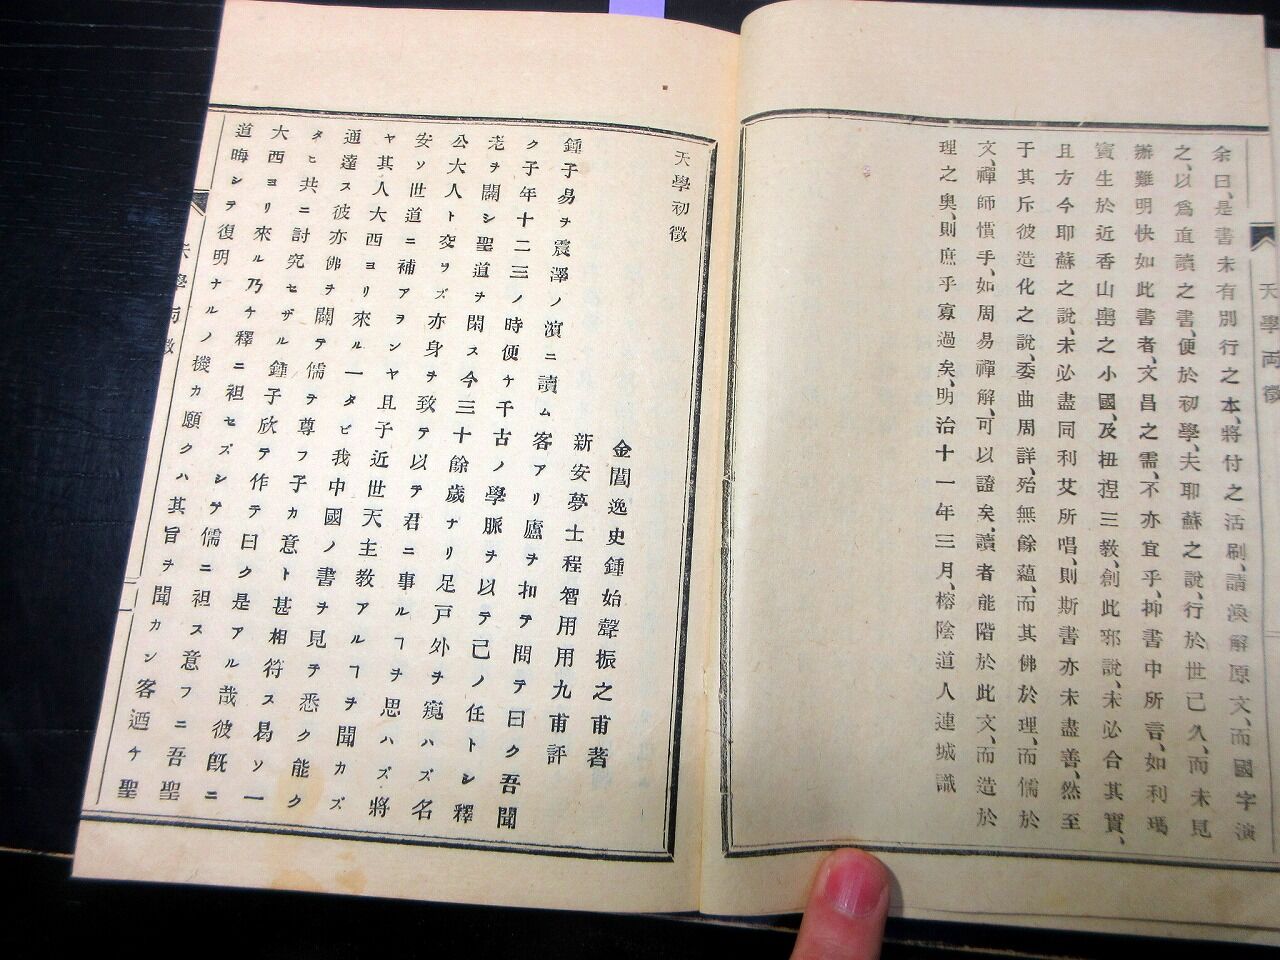 天學兩徵
余曰、是書未有別行之本、將付之活刷、請渙解原文、而國字演
之、以爲直讀之書、便於初學、夫耶蘇之說、行於世已久、而未見
辦難明快如此書者、文昌之需、不亦宜乎、抑書中所言、如利瑪
竇生於近香山嶴之小國、及扭捏三教、創此邪說、未必合其實、
且方今耶蘇之說、未必盡同利艾所唱、則斯書亦未盡善、然至
于其斥彼造化之說、委曲周詳、殆無餘蘊、而其佛於理、而儒於
文、禪師慣手、如周易禪解、可以證矣、讀者能階於此文、而造於
理之奧、則庶乎寡過矣、明治十一年三月、榕陰道人連城識
天學初徵
金閶逸史鍾始聲振之甫著
新安夢士程智用用九甫評
鍾子易ヲ震澤ノ濱ニ讀ム客アリ廬ヲ扣テ問テ曰ク吾聞
ク子年十二三ノ時便ケ千古ノ學脈ヲ以テ己ノ任トシ釋
老ヲ闢シ聖道ヲ閑ス今三十餘歲ナリ足戸外ヲ窺ハズ名
公大人ト交ワズ亦身ヲ致テ以テ君ニ事ルヿヲ思ハズ將
安ソ世道ニ補アヲンヤ且子近世天主教アルヿヲ聞カズ
ヤ其人大西ヨリ來ル一タビ我中國ノ書ヲ見テ悉ク能ク
通達ス彼亦佛ヲ闢テ儒ヲ尊フ子カ意ト甚相符ス曷ソ一
タヒ共ニ討究セザル鍾子欣テ作テ曰ク是アル哉彼旣ニ
大西ヨリ來ル乃ケ釋ニ祖セズシテ儒ニ祖ス意フニ吾聖
道晦シテ復明ナルノ機カ願クハ其旨ヲ聞カン客迺ケ聖
天學兩徵
一